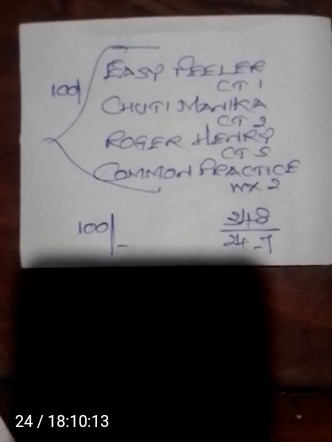 100/
EASY PEELER
CT 1
CHUTI MANIKA
CT 2
ROGER HENRY
CT 5
COMMON PRACTICE
WX 2
100/-
348
24-7
24 / 18:10:13